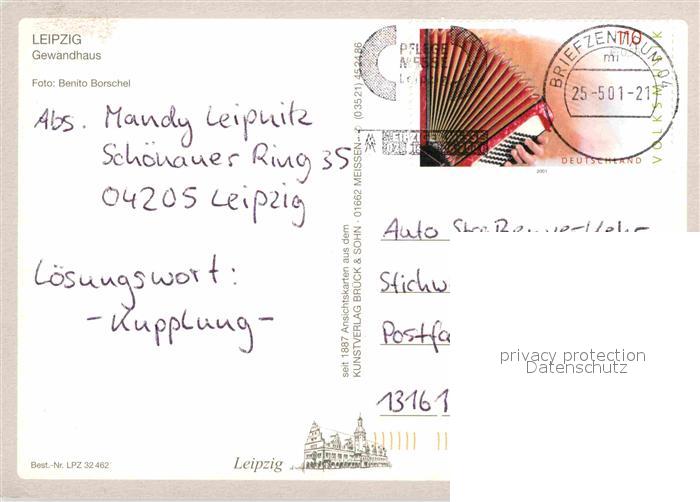 LEIPZIG
Gewandhaus
Foto: Benito Borschel
Abs. Mandy Leipnitz
Schönauer Ring 35
04205 Leipzig
Lösungswort:
- Kupplung -
Best.-Nr. LPZ 32 462
Leipzig
seit 1887 Ansichtskarten aus dem
KUNSTVERLAG BRÜCK & SOHN · 01662 MEISSEN · (03521) 45 24 86
PFLEGE
MESSE
Leipzig
110
DEUTSCHLAND
2001
VOLKSMUSIK
BRIEFZENTRUM 04
mi
25-5.01-21
Auto Straßenverkehr
Stichw
Postfa
13161
privacy protection
Datenschutz